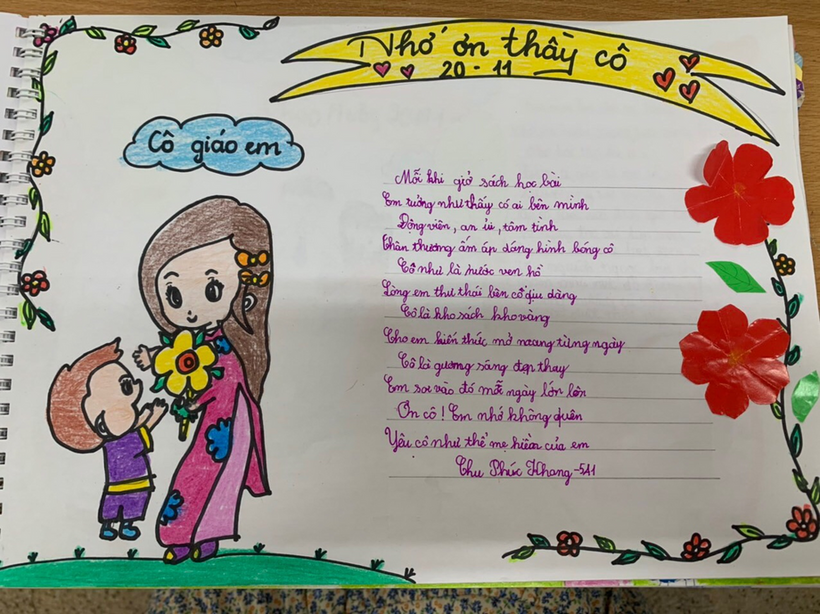 Nhớ ơn thầy cô
20 - 11
Cô giáo em
Mỗi khi giở sách học bài
Em tưởng như thấy có ai bên mình
Động viên, an ủi, tâm tình
Thân thương ấm áp dáng hình bóng cô
Cô như là nước ven hồ
Lòng em thư thái bên cô dịu dàng
Cô là kho sách kho vàng
Cho em kiến thức mở mang từng ngày
Cô là gương sáng đẹp thay
Em soi vào đó mỗi ngày lớn lên
Ơn cô! Em nhớ không quên
Yêu cô như thể mẹ hiền của em
Chu Phúc Khang - 5A1